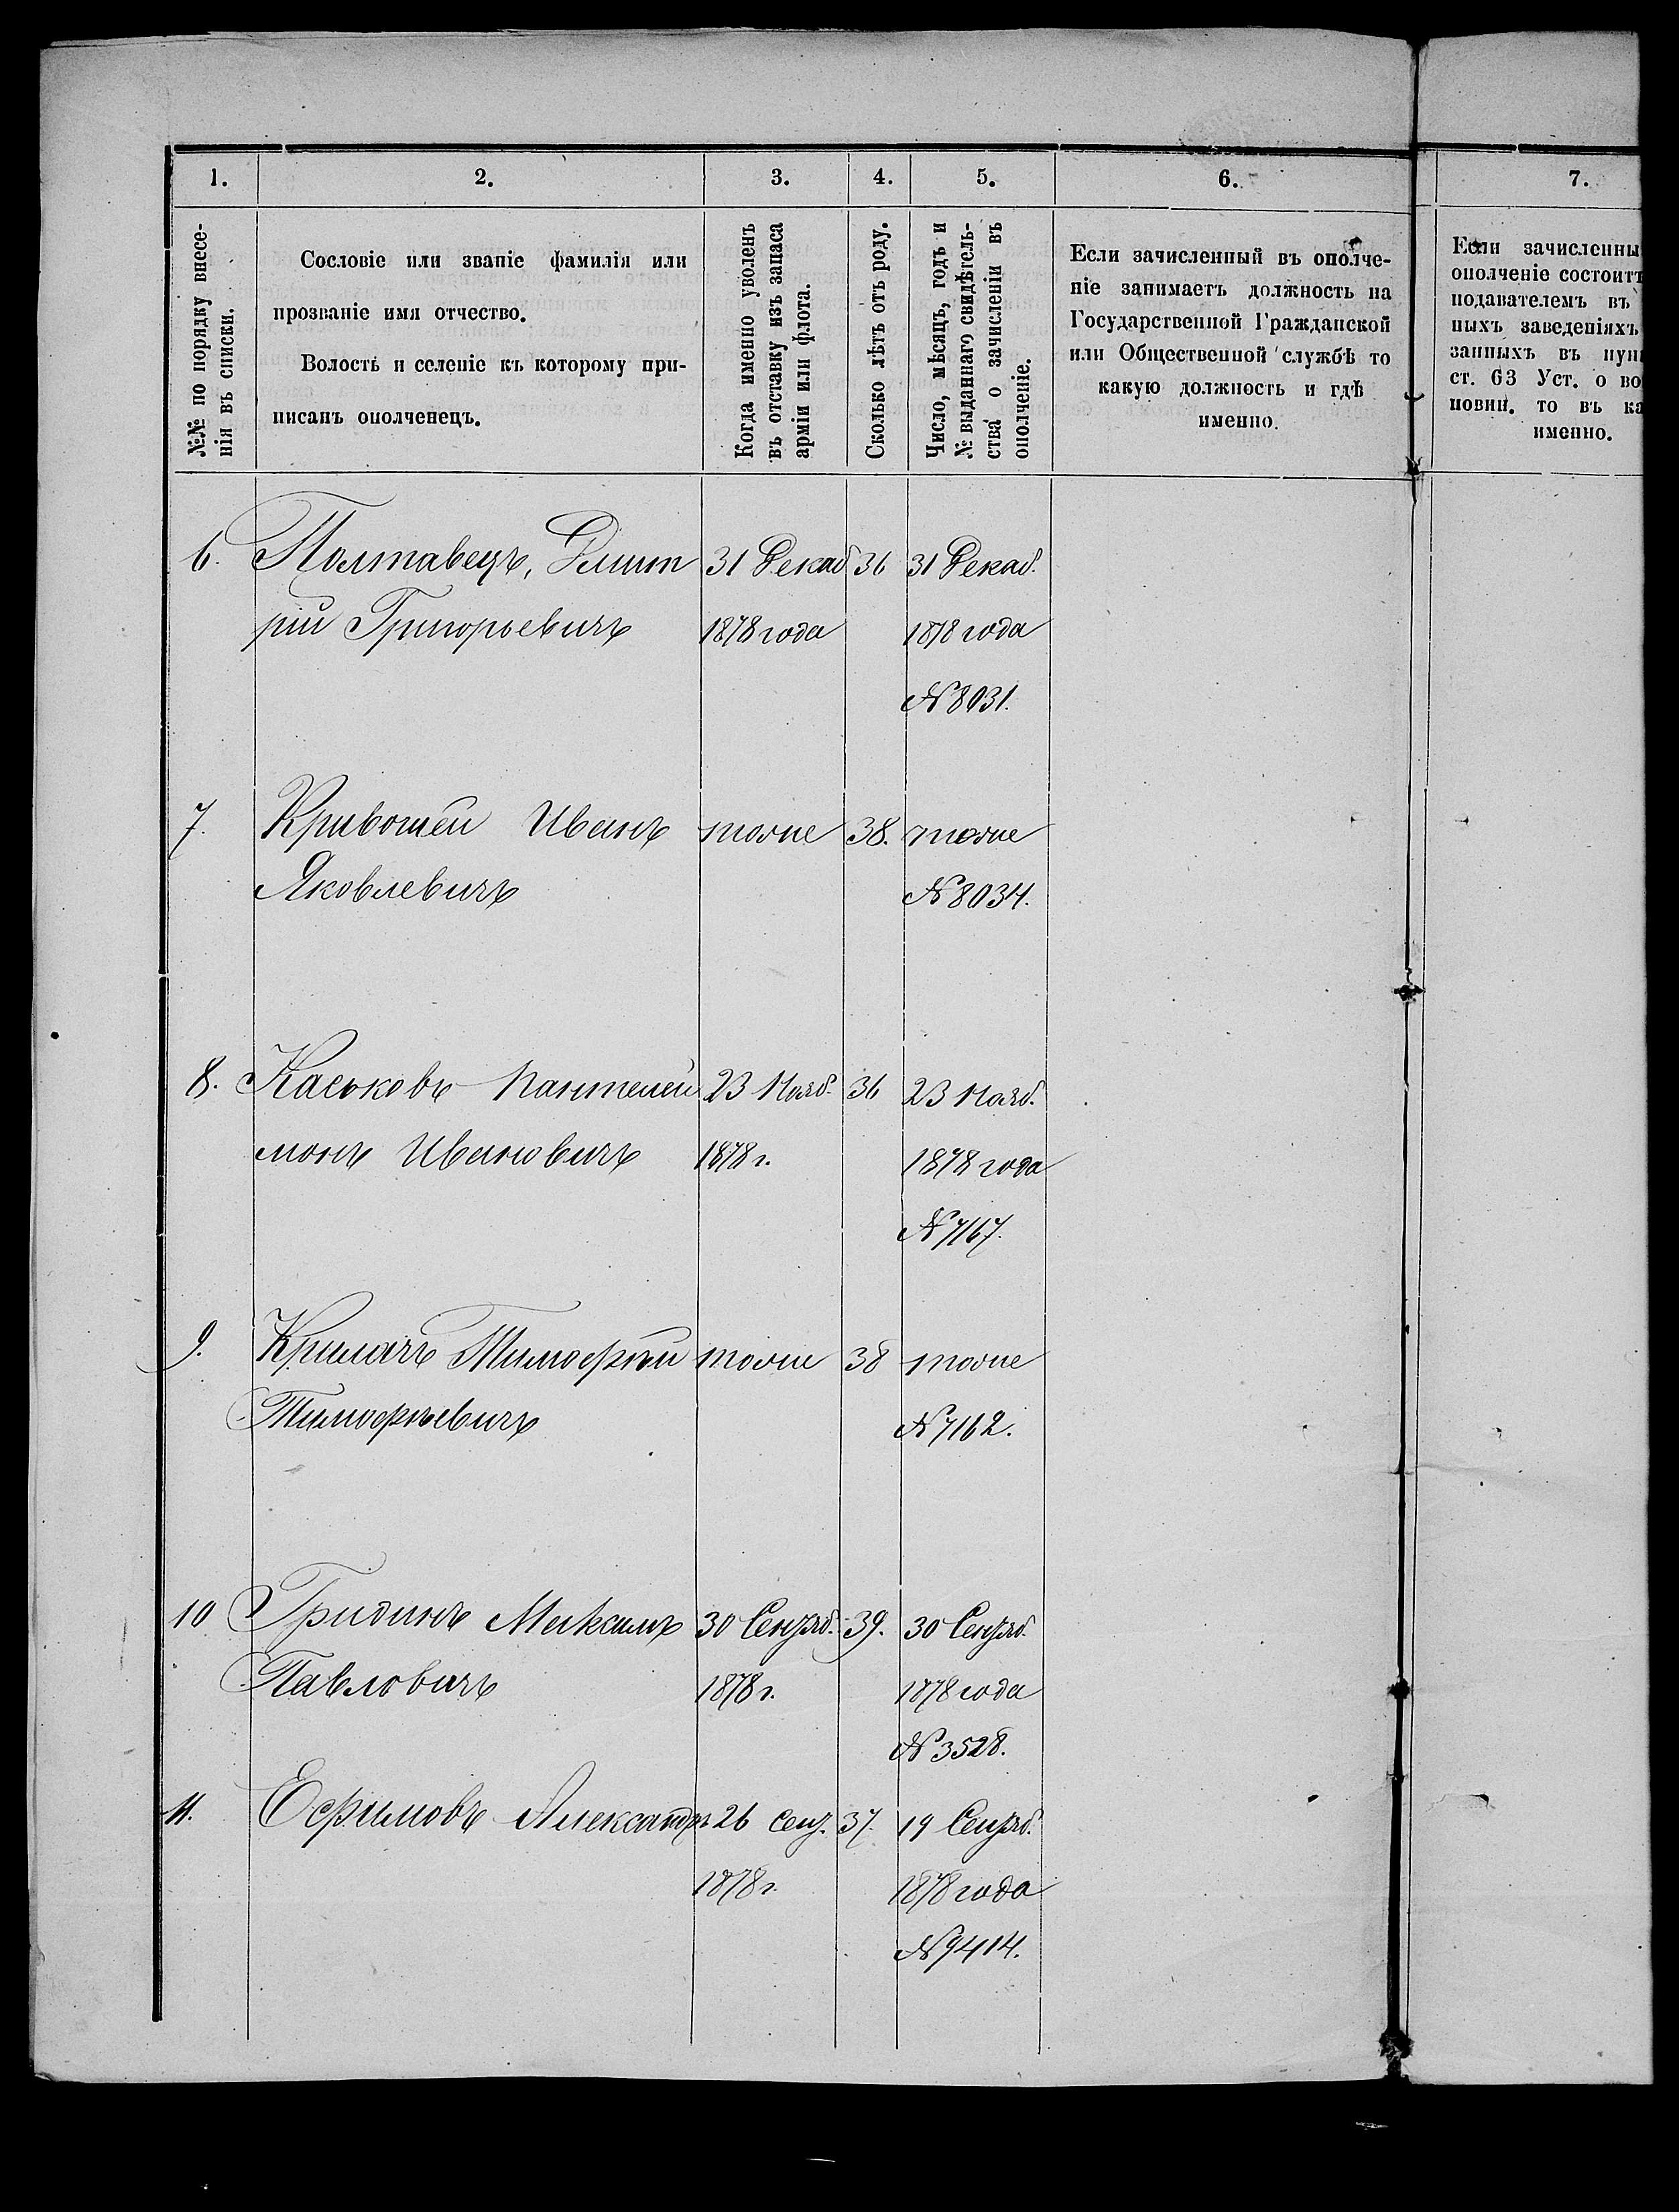 1. 2. 3. 4. 5. 6. 7.
№№ по порядку внесе-
нія въ списки.
Сословіе или званіе фамилія или
прозваніе имя отчество.
Волость и селеніе къ которому при-
писанъ ополченецъ.
Когда именно уволенъ
въ отставку изъ запаса
арміи или флота.
Сколько лѣтъ отъ роду.
Число, мѣсяцъ, годъ и
№ выданнаго свидѣтель-
ства о зачисленіи въ
ополченіе.
Если зачисленный въ ополче-
ніе занимаетъ должность на
Государственной Гражданской
или Общественной службѣ то
какую должность и гдѣ
именно.
Если зачисленны
ополченіе состоитъ
подавателемъ въ
ныхъ заведеніяхъ
занныхъ въ пун
ст. 63 Уст. о во
повин. то въ ка
именно.
6. Полтавецъ, Дмит 31 Декаб 36 31 Декаб.
рій Григорьевичъ 1878 года 1878 года
№ 8031.
7. Кривошеи Иванъ тоже 38. тоже
Яковлевичъ № 8034.
8. Каськовъ Пантелей 23 Нояб. 36 23 Нояб.
монъ Ивановичъ 1878 г. 1878 года
№ 7167.
9. Крыматъ Тимофѣй тоже 38 тоже
Тимофѣевичъ № 7162.
10 Гридинъ Максимъ 30 Сентяб. 39. 30 Сентяб.
Павловичъ 1878 г. 1878 года
№ 3528.
11. Ефимовъ Александръ 26 сент. 37. 19 Сентяб.
1878 г. 1878 года
№ 9414.